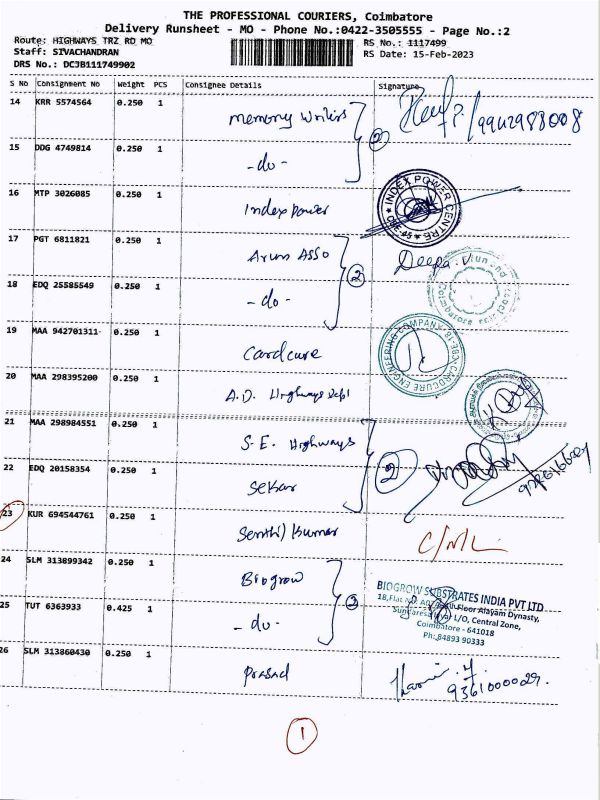 THE PROFESSIONAL COURIERS, Coimbatore
Delivery Runsheet - MO - Phone No.:0422-3505555 - Page No.:2
Route: HIGHWAYS TRZ RD MO
RS No.: 1117499
Staff: SIVACHANDRAN
RS Date: 15-Feb-2023
DRS No.: DCJB111749902
S No Consignment No Weight PCS Consignee Details Signature
14 KRR 5574564 0.250 1 Memory Writers 2
15 DDG 4749814 0.250 1 -do-
16 MTP 3026085 0.250 1 Index power INDEX POWER CENTRE
17 PGT 6811821 0.250 1 Arun Asso 2 Deepa
18 EDQ 25585549 0.250 1 -do-
19 MAA 942701311 0.250 1 Cardcure CARDCURE ENGINEERING COMPANY
20 MAA 298395200 0.250 1 A.D. Highways Dept
21 MAA 298984551 0.250 1 S.E. Highways 2
22 EDQ 20158354 0.250 1 Sekar
23 KUR 694544761 0.250 1 Senthil Kumar
24 SLM 313899342 0.250 1 Biogrow 2 BIOGROW SUBSTRATES INDIA PVT LTD
18, Floor Alayam Dynasty,
25 TUT 6363933 0.425 1 -do- L/O, Central Zone,
Coimbatore - 641018
Ph: 84893 90333
26 SLM 313860430 0.250 1 Prasad
1